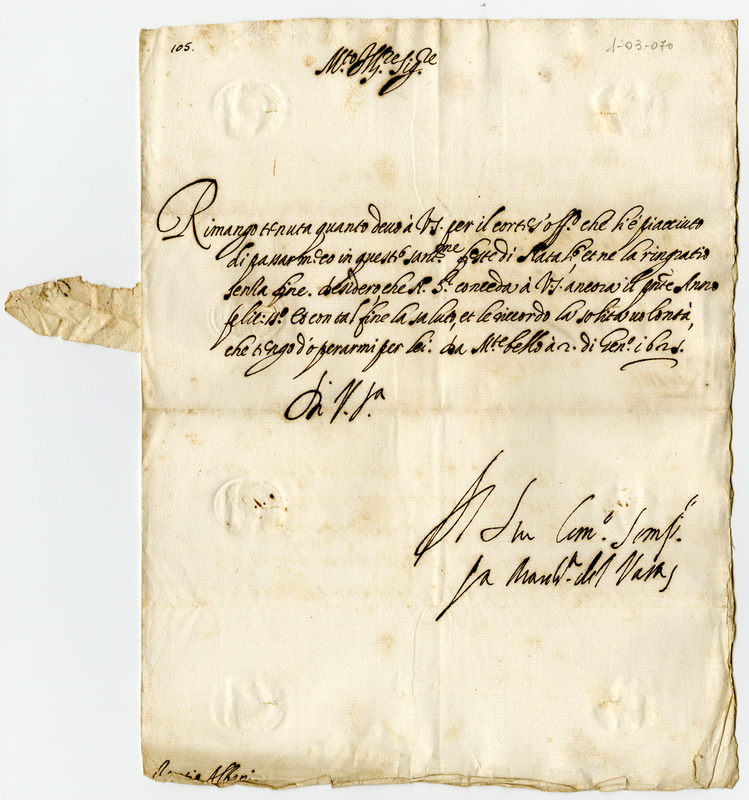 105.
1-03-070
M.to Ill.re Sig.re
Rimango tenuta quanto devo à V.S. per il cortes' off.o che li è piacciuto
di passar meco in queste sant.me feste di Natale, et ne la ringratio
senza fine. desidero che N. S. conceda à V.S. ancora il pnte Anno
felic.mo Et con tal fine la saluto, et le riccordo la solita volontà,
che tengo d'operarmi per lei. da M.te bello à 2. di Gen.o 162
Di V. S.ra
A Ser Com.o Semp.
La March.a del Vasto